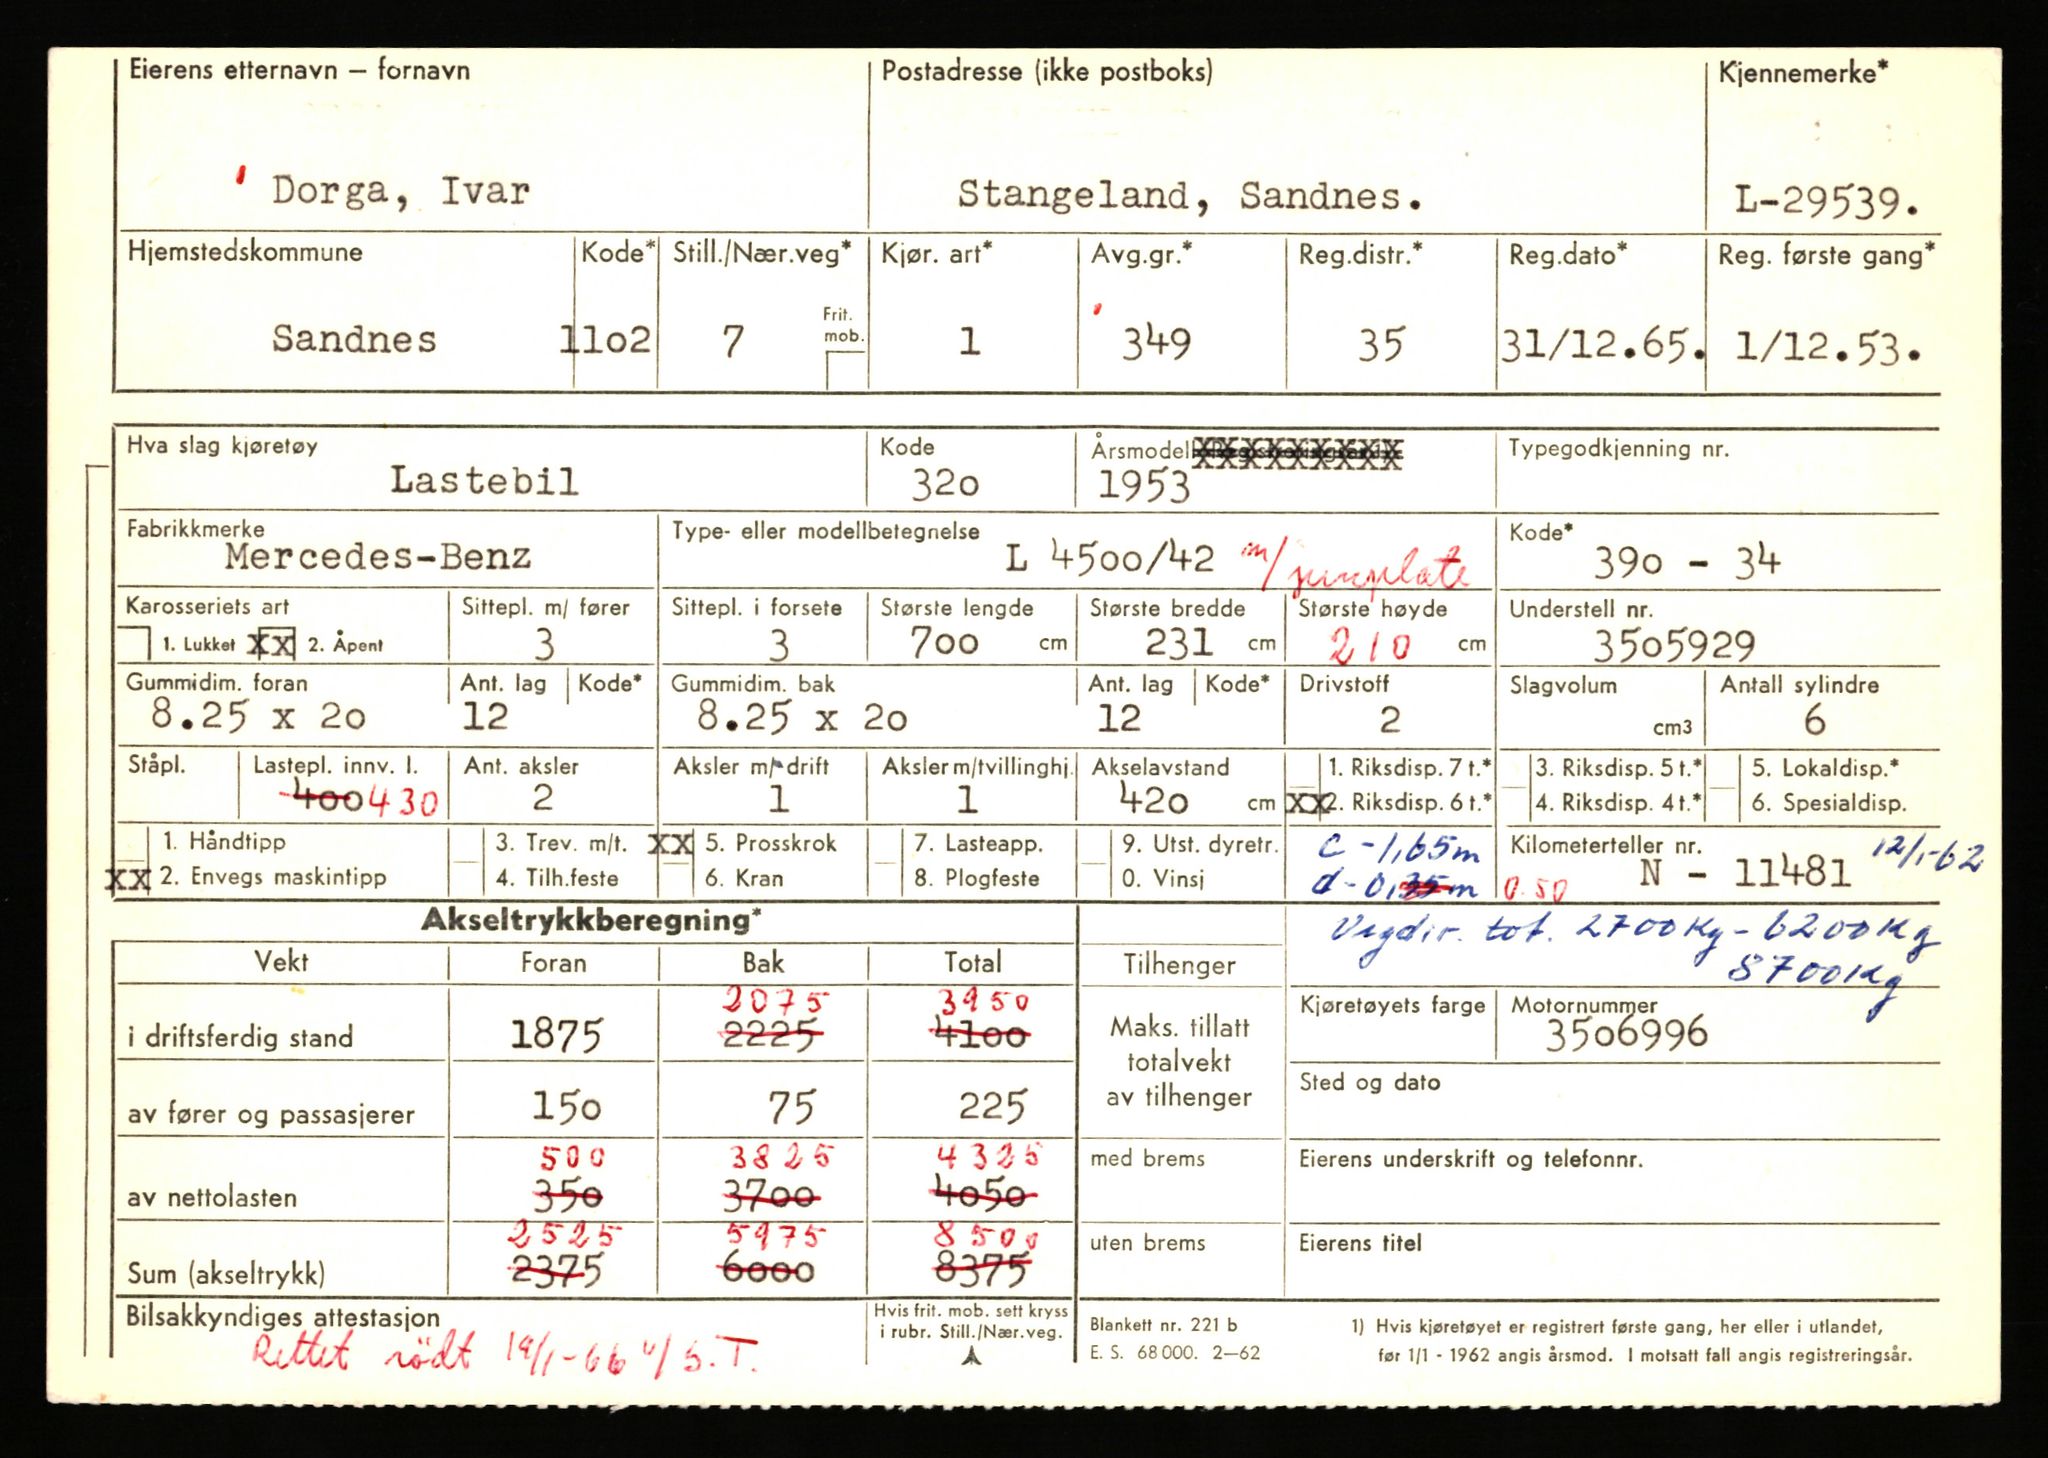 Eierens etternavn – fornavn Postadresse (ikke postboks) Kjennemerke*
Dorga, Ivar Stangeland, Sandnes. L-29539.
Hjemstedskommune Kode* Still./Nær.veg* Kjør. art* Avg.gr.* Reg.distr.* Reg.dato* Reg. første gang*
Frit. mob.
Sandnes 11o2 7 1 349 35 31/12.65. 1/12.53.
Hva slag kjøretøy Kode Årsmodell Typegodkjenning nr.
Lastebil 32o 1953
Fabrikkmerke Type- eller modellbetegnelse Kode*
Mercedes-Benz L 45oo/42 m/ 39o - 34
Karosseriets art Sittepl. m/ fører Sittepl. i forsete Største lengde Største bredde Største høyde Understell nr.
1. Lukket XX 2. Åpent 3 3 7oo cm 231 cm 210 cm 35o5929
Gummidim. foran Ant. lag Kode* Gummidim. bak Ant. lag Kode* Drivstoff Slagvolum Antall sylindre
8.25 x 2o 12 8.25 x 2o 12 2 cm3 6
Ståpl. Lastepl. innv. l. Ant. aksler Aksler m/ drift Aksler m/tvillinghj. Akselavstand 1. Riksdisp. 7 t.* 3. Riksdisp. 5 t.* 5. Lokaldisp.*
4oo 430 2 1 1 42o cm XX 2. Riksdisp. 6 t.* 4. Riksdisp. 4 t.* 6. Spesialdisp.
1. Håndtipp 3. Trev. m/t. XX 5. Prosskrok 7. Lasteapp. 9. Utst. dyretr. c - 1,65m Kilometerteller nr. 12/1-62
XX 2. Envegs maskintipp 4. Tilh.feste 6. Kran 8. Plogfeste 0. Vinsj d - 0,35m 0.50 N - 11481
Akseltrykkberegning* Vegdir. tot. 2700Kg - 6200Kg
Vekt Foran Bak Total Tilhenger 8700Kg
2075 3950
i driftsferdig stand 1875 2225 41oo Maks. tillatt totalvekt av tilhenger Kjøretøyets farge Motornummer
35o6996
Sted og dato
av fører og passasjerer 15o 75 225
500 3825 4325
av nettolasten 35o 37oo 4o5o med brems Eierens underskrift og telefonnr.
2525 5975 8500
Sum (akseltrykk) 2375 6ooo 8375 uten brems Eierens titel
Bilsakkyndiges attestasjon Hvis frit. mob. sett kryss i rubr. Still./Nær.veg. Blankett nr. 221 b 1) Hvis kjøretøyet er registrert første gang, her eller i utlandet,
Rettet rødt 19/1-66 S.T. E. S. 68 000. 2–62 før 1/1 - 1962 angis årsmod. I motsatt fall angis registreringsår.